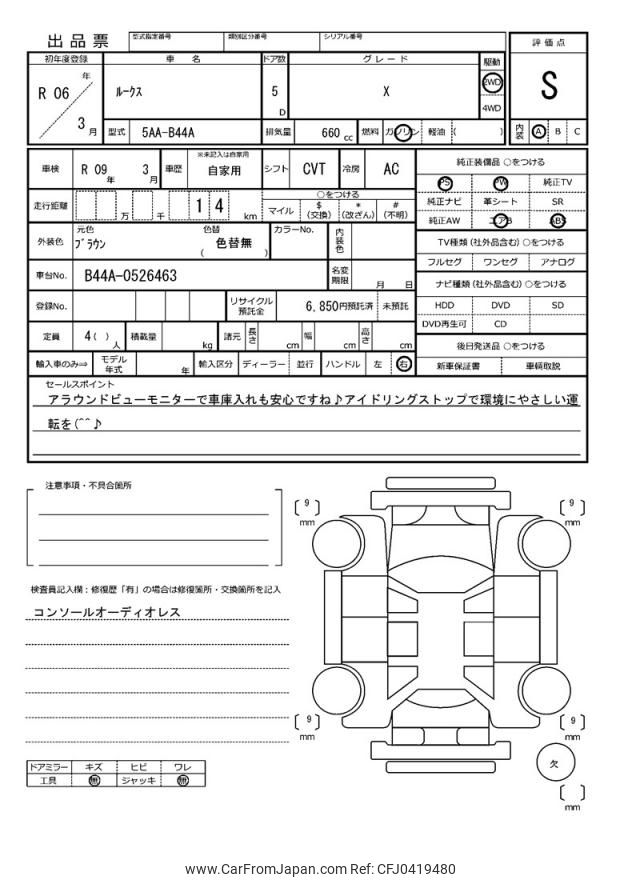 出品票 型式指定番号 類別区分番号 シリアル番号
評価点
S
内装 A B C
初年度登録 車名 ドア数 グレード 駆動
R 06 年 3 月 ルークス 5 D X 2WD 4WD
型式 5AA-B44A 排気量 660 cc 燃料 ガソリン 軽油 ( )
車検 R 09 年 3 月 車歴 ※未記入は自家用 自家用 シフト CVT 冷房 AC
純正装備品 ○をつける
PS PW 純正TV
純正ナビ 革シート SR
純正AW エアB ABS
走行距離 万 千 1 4 km
○をつける
マイル $(交換) *(改ざん) #(不明)
外装色 元色 ブラウン 色替 ( 色替無 ) カラーNo. 内装色
TV種類(社外品含む)○をつける
フルセグ ワンセグ アナログ
車台No. B44A-0526463 名変期限 月 日
ナビ種類(社外品含む)○をつける
HDD DVD SD
DVD再生可 CD
登録No. リサイクル預託金 6,850円預託済 未預託
定員 4( )人 積載量 kg 諸元 長さ cm 幅 cm 高さ cm
後日発送品 ○をつける
新車保証書 車輌取説
輸入車のみ⇒ モデル年式 年 輸入区分 ディーラー 並行 ハンドル 左 右
セールスポイント
アラウンドビューモニターで車庫入れも安心ですね♪アイドリングストップで環境にやさしい運
転を(^^♪
注意事項・不具合箇所
検査員記入欄:修復歴「有」の場合は修復箇所・交換箇所を記入
コンソールオーディオレス
[ 9 ] mm
[ 9 ] mm
[ 9 ] mm
[ 9 ] mm
欠
[ ] mm
ドアミラー キズ ヒビ ワレ
工具 無 ジャッキ 無
www.CarFromJapan.com Ref: CFJ0419480